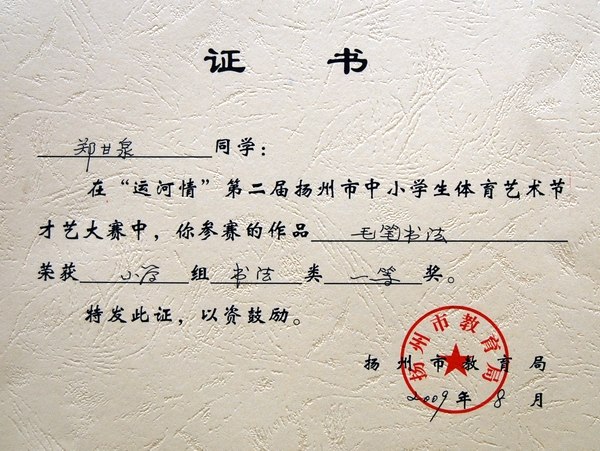 证书
郑甘泉同学：
在“运河情”第二届扬州市中小学生体育艺术节
才艺大赛中，你参赛的作品毛笔书法
荣获小学组书法类一等奖。
特发此证，以资鼓励。
扬州市教育局
扬州市教育局
2009年8月